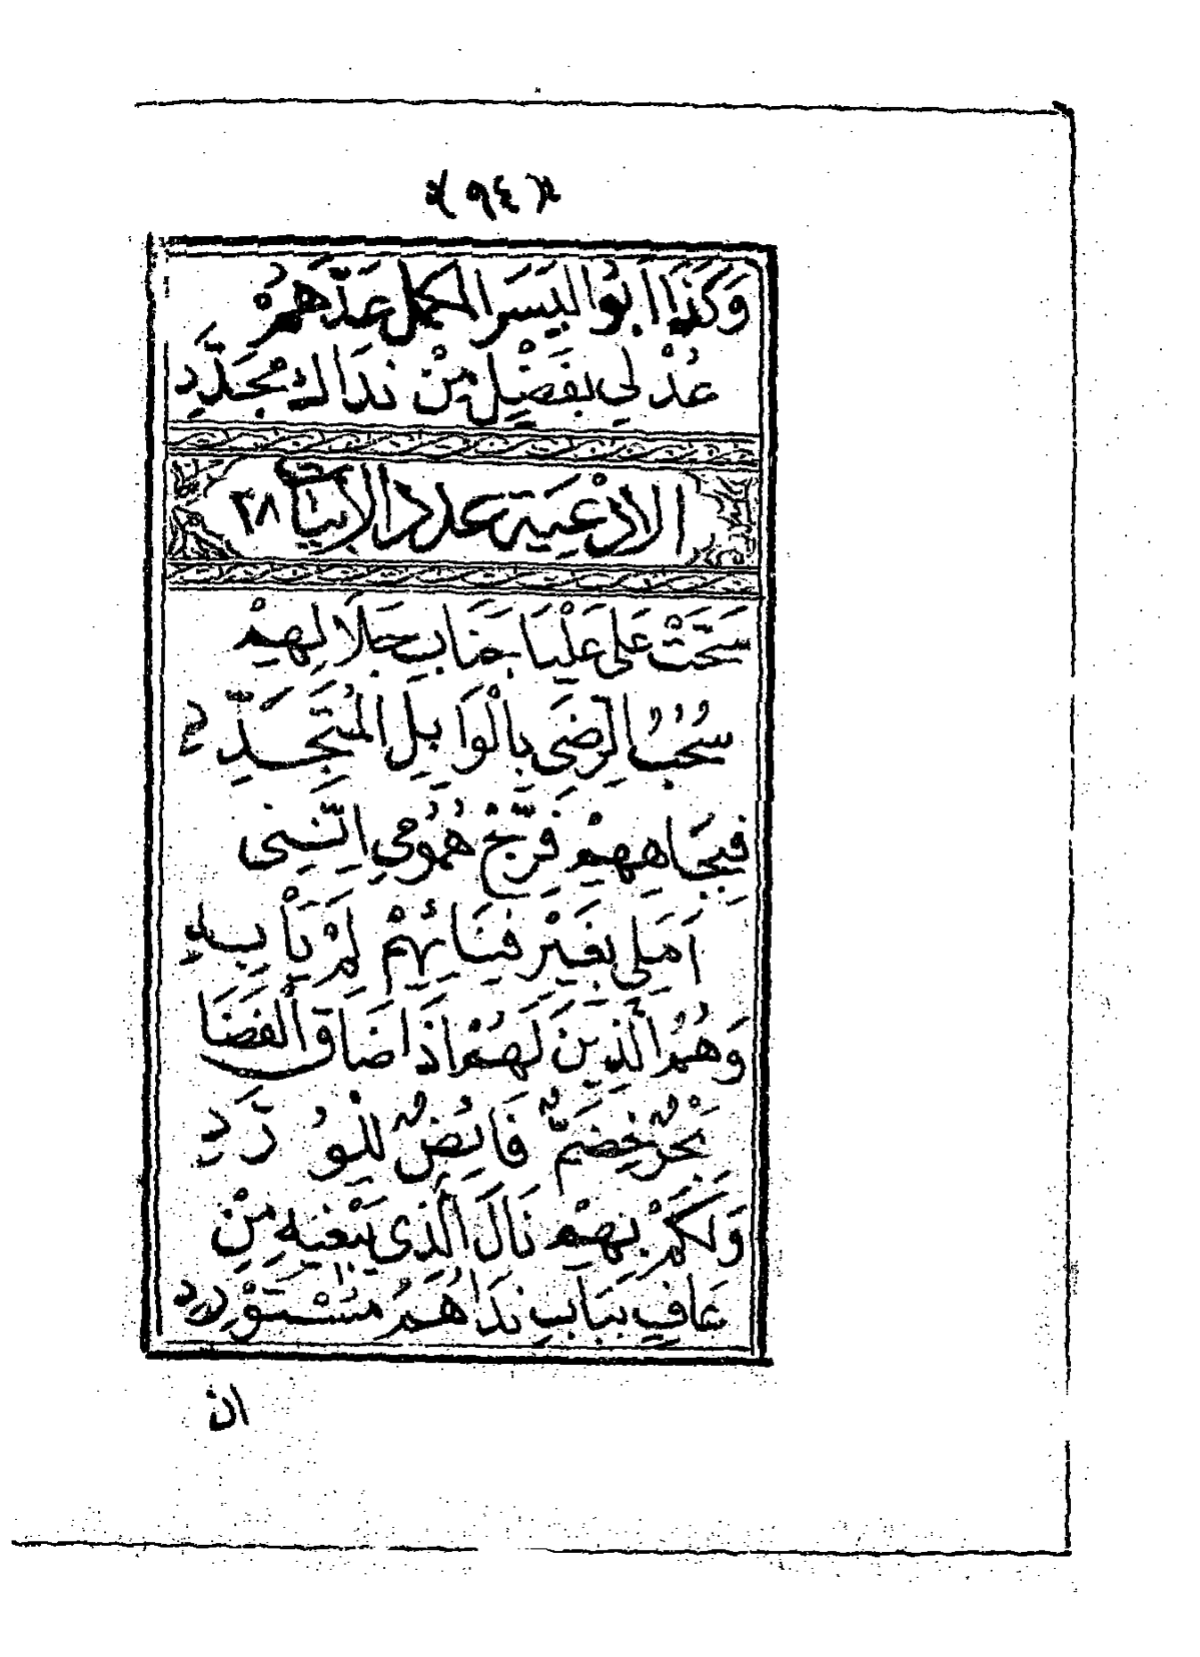 ﴿٩٤﴾
وَكَذَا اَبُو الْيَسَرِ الْمُكَمَّلِ عَدَّهُمْ
عُدْ لِي بِفَضْلٍ مِنْ نَدَاكَ مُجَدَّدِ
الاَدْعِيَة عدد الابيات ٢٨
سَحَّتْ عَلَى عَلْيَا جَنَابِ جَلَالِهِمْ
سُحُبُ الرِّضَى بِالْوَابِلِ الْمُتَجَدِّدِ
فَبِجَاهِهِمْ فَرِّجْ هُمُومِي اِنَّنِي
اَمَلِي بِغَيْرِ فِنَائِهِمْ لَمْ يَأْبِدِ
وَهُمُ الَّذِينَ لَهُمْ اِذَا ضَاقَ الْفَضَا
بَحْرٌ خِضَمٌّ فَائِضٌ لِلْوُرَّدِ
وَلَكَمْ بِهِمْ نَالَ الَّذِي يَبْغِيهِ مِنْ
عَافٍ بِبَابِ نَدَاهُمُ مُسْتَوْرِدِ
ان